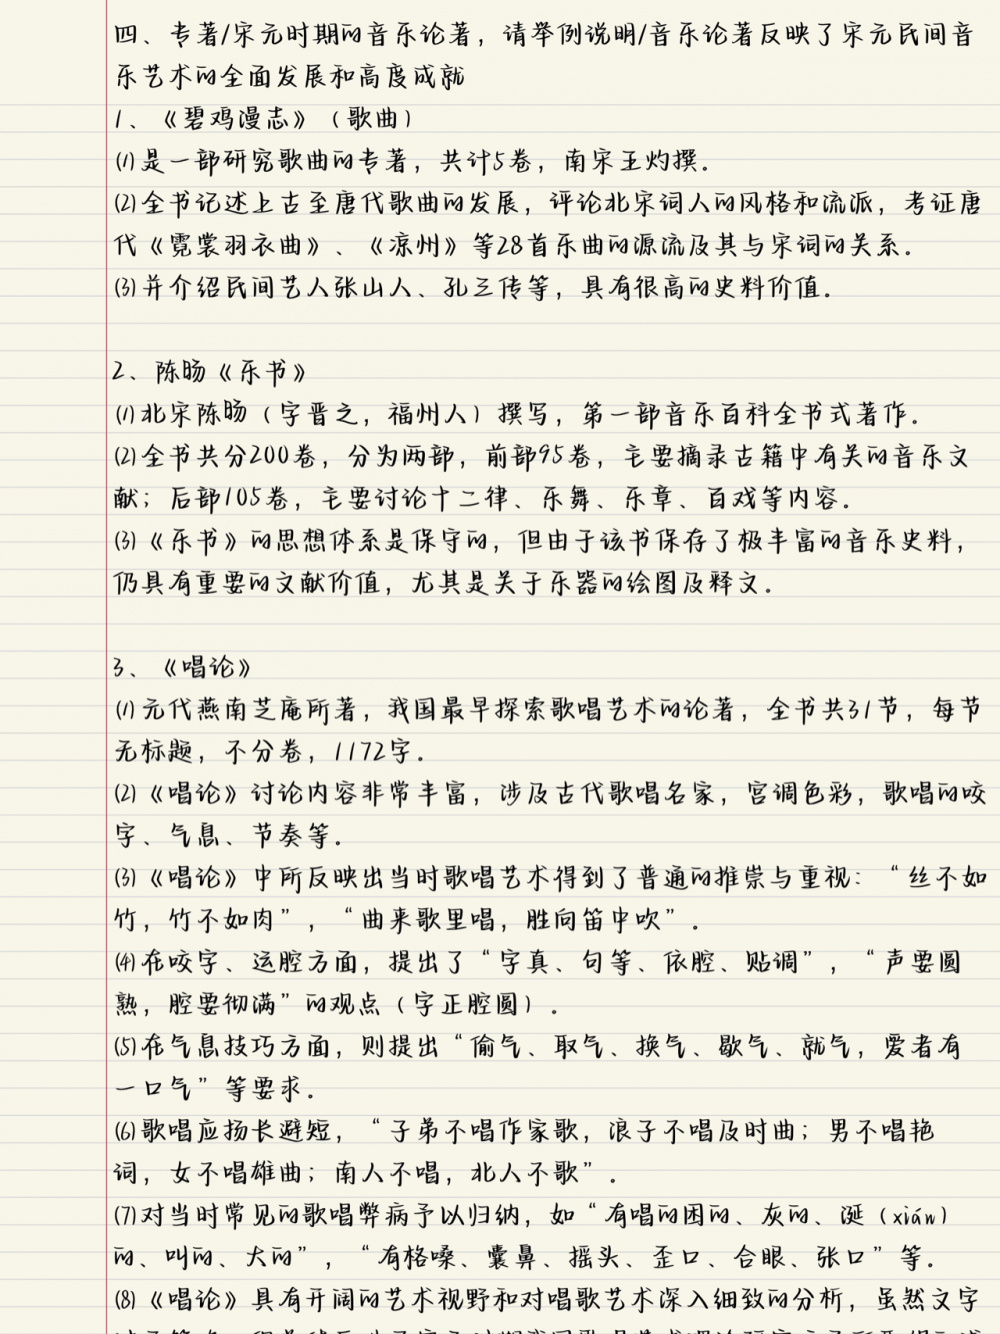 四、专著/宋元时期的音乐论著，请举例说明/音乐论著反映了宋元民间音
乐艺术的全面发展和高度成就
1、《碧鸡漫志》（歌曲）
(1)是一部研究歌曲的专著，共计5卷，南宋王灼撰。
(2)全书记述上古至唐代歌曲的发展，评论北宋词人的风格和流派，考证唐
代《霓裳羽衣曲》、《凉州》等28首乐曲的源流及其与宋词的关系。
(3)并介绍民间艺人张山人、孔三传等，具有很高的史料价值。
2、陈旸《乐书》
(1)北宋陈旸（字晋之，福州人）撰写，第一部音乐百科全书式著作。
(2)全书共分200卷，分为两部，前部95卷，主要摘录古籍中有关的音乐文
献；后部105卷，主要讨论十二律、乐舞、乐章、百戏等内容。
(3)《乐书》的思想体系是保守的，但由于该书保存了极丰富的音乐史料，
仍具有重要的文献价值，尤其是关于乐器的绘图及释文。
3、《唱论》
(1)元代燕南芝庵所著，我国最早探索歌唱艺术的论著，全书共31节，每节
无标题，不分卷，1172字。
(2)《唱论》讨论内容非常丰富，涉及古代歌唱名家，宫调色彩，歌唱的咬
字、气息、节奏等。
(3)《唱论》中所反映出当时歌唱艺术得到了普遍的推崇与重视：“丝不如
竹，竹不如肉”，“曲来歌里唱，胜向笛中吹”。
(4)在咬字、运腔方面，提出了“字真、句笃、依腔、贴调”，“声要圆
熟，腔要彻满”的观点（字正腔圆）。
(5)在气息技巧方面，则提出“偷气、取气、换气、歇气、就气，爱者有
一口气”等要求。
(6)歌唱应扬长避短，“子弟不唱作家歌，浪子不唱及时曲；男不唱艳
词，女不唱雄曲；南人不唱，北人不歌”。
(7)对当时常见的歌唱弊病予以归纳，如“有唱的困的、灰的、涎（xián）
的、叫的、大的”，“有格嗓、囊鼻、摇头、歪口、合眼、张口”等。
(8)《唱论》具有开阔的艺术视野和对唱歌艺术深入细致的分析，虽然文字